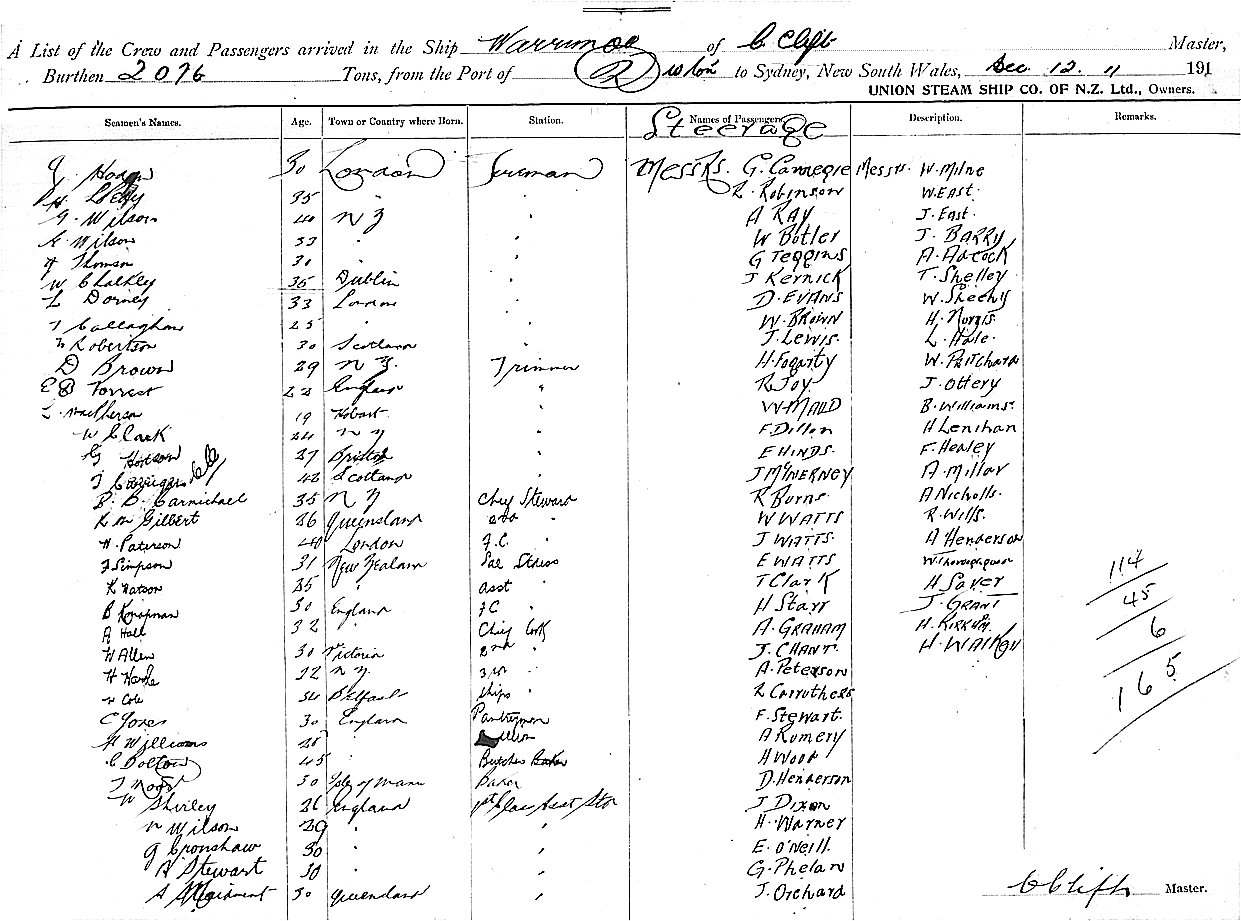 A List of the Crew and Passengers arrived in the Ship Warrimoo of C Clift Master,
Burthen 2076 Tons, from the Port of to Sydney, New South Wales, Dec. 12. 11 191
UNION STEAM SHIP CO. OF N.Z. Ltd., Owners.
Seamen's Names. Age. Town or Country where Born. Station. Names of Passengers. Description. Remarks.
Steerage
30 London Fireman Messrs. G. Carnegie Messrs. W. Milne
35 " " R. Robinson W. East.
G. Wilson 40 N Z " A Ray J. East.
G. Wilson 33 " " W Butler J. Barry
Thomson 30 " " G Teggins A. Adcock
W Chalkley 35 Dublin " J Kernick T. Shelley
L Dorney 33 London " D. Evans W. Sheehy
T Callaghan 25 " " W. Brown H. Norris
Robertson 30 Scotland " J. Lewis L. Hale.
D Brown 29 N Z. Trimmer H. Fogarty W. Pritchard
E B Forrest 23 England " R Joy J. Ottery
L. MacPherson 19 Hobart. " W. Maild B. Williams.
W Clark 24 N Z " F Dillon H Lenihan
G Hodson 27 Bristol " E Hinds. F. Henley
T 42 Scotland " J McInerney A. Millar
B. B. Carmichael 35 N Z Chief Steward R Burns A Nicholls.
R M Gilbert 26 Queensland 2nd " W Watts R. Wills.
H. Paterson 40 London F.C. " J Watts. A Henderson
J Simpson 31 New Zealand E Watts
K Watson 35 " asst " T Clark H Saver
B Knapman 30 England FC " H Starr J. Grant
A Hall 32 " Chief Cook A. Graham H. Kirkum.
W Allen 30 Victoria 2nd " J. Chant. H. Walker
H Hardle 22 N Z. 3rd " A. Peterson
Cole 34 Belfast Ships " R Carruthers
C Jones 30 England Pantryman F. Stewart.
H Williams 25 " A Rumery
C Bolton 45 " Butcher H Wood
T 30 Isle of Man Baker D. Henderson
W Shirley 26 England 1st Class Asst Std J Dixon
Wilson 29 " " H. Warner
G Cronshaw 30 " " E. O'Neill.
A Stewart 30 " " G. Phelan
A 30 Queensland " J. Orchard
114
45
6
165
C Clift Master.